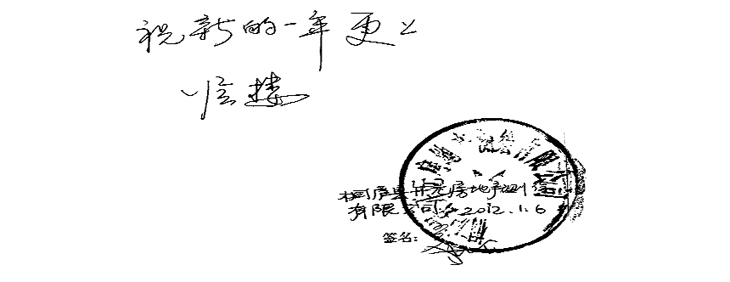 祝新的一年更上
一层楼
桐庐县开元房地产测绘
有限公司 2012.1.6
签名: